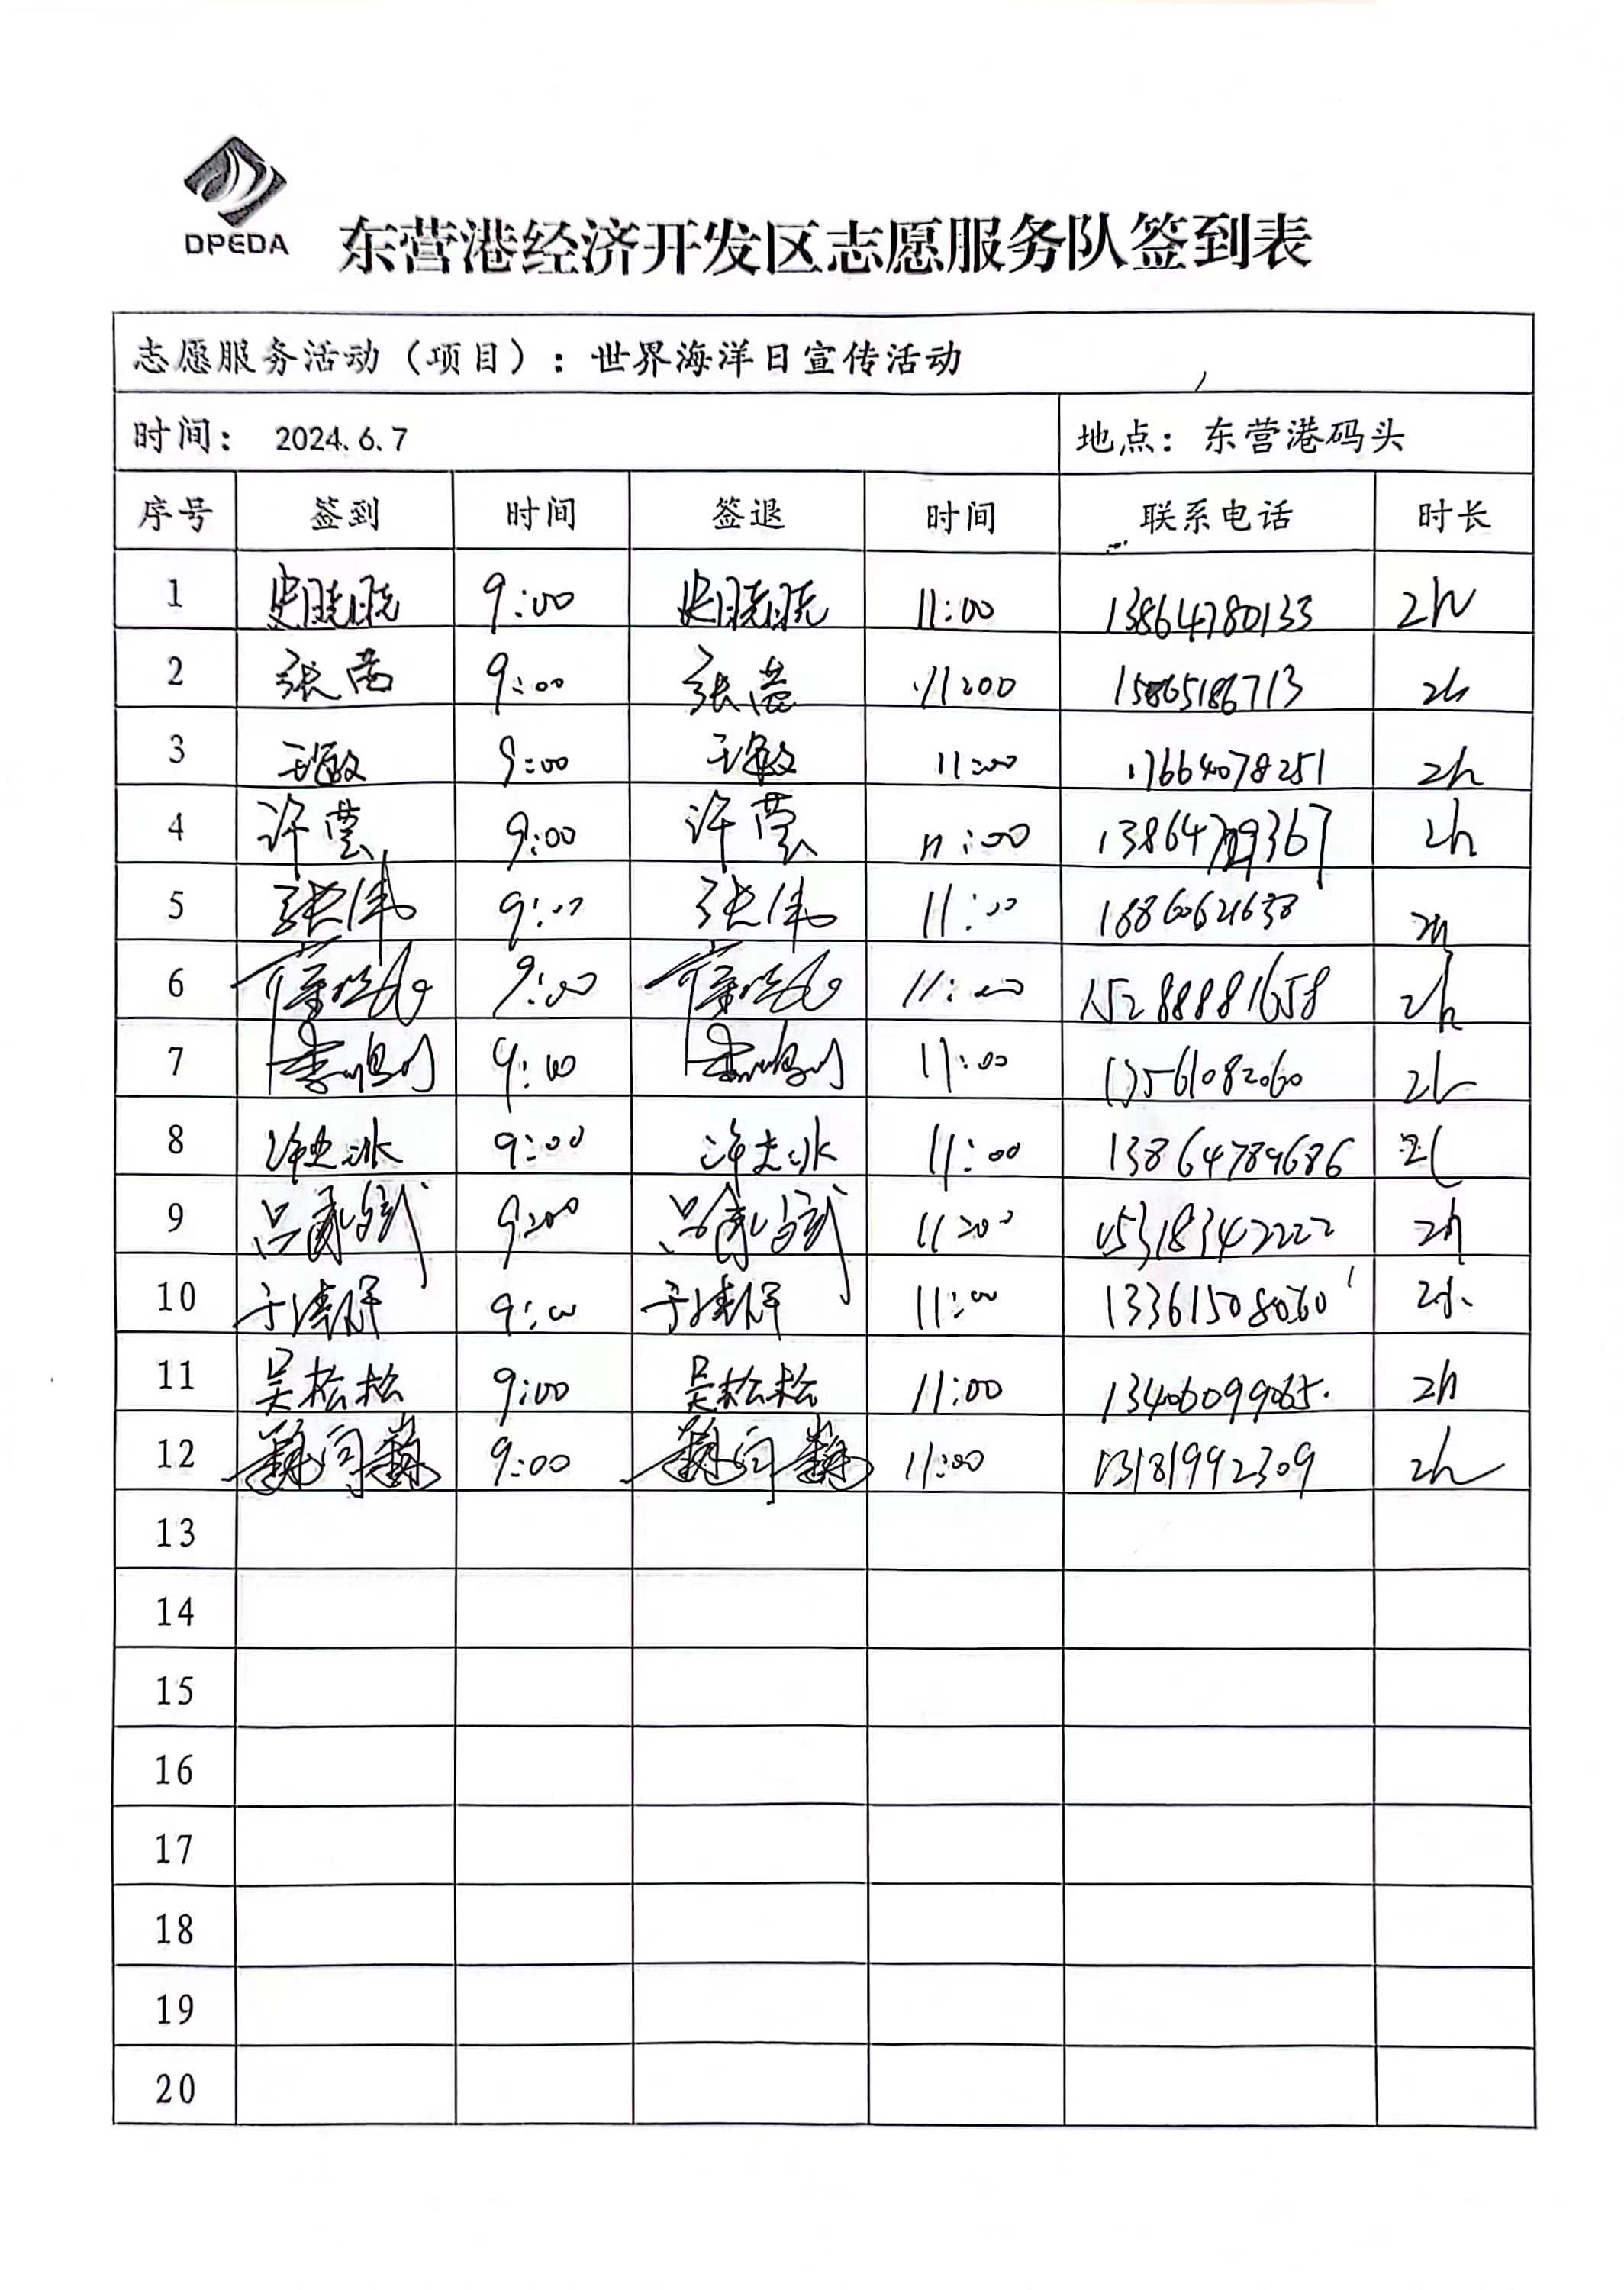 DPEDA
东营港经济开发区志愿服务队签到表
志愿服务活动（项目）：世界海洋日宣传活动
时间： 2024.6.7 地点：东营港码头
序号 签到 时间 签退 时间 联系电话 时长
1 史晓晓 9:00 史晓晓 11:00 13864780133 2h
2 张蕾 9:00 张蕾 11:00 15865186713 2h
3 9:00 11:00 17664078251 2h
4 许莹 9:00 许莹 11:00 2h
5 张伟 9:00 张伟 11:00 2h
6 9:00 11:00 15288881658 2h
7 9:00 11:00 2h
8 9:00 11:00 13864789686
9 9:00 11:00 15318342222 2h
10 9:00 11:00 2h
11 吴松松 9:00 吴松松 11:00 13406099065 2h
12 9:00 11:00 13181992309 2h
13
14
15
16
17
18
19
20